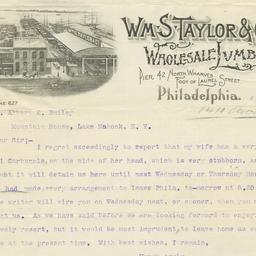 WM. S. TAYLOR & C
WHOLESALE LUMB
PIER 42 NORTH WHARVES
FOOT OF LAUREL STREET
Philadelphia.
NE 627
Albert K. Smiley
Mountain House, Lake Mohonk, N. Y.
ear Sir;-
I regret exceedingly to report that my wife has a very
l Carbuncle, on the side of her head, which is very stubborn, a
oubt it will detain us here until next Wednesday or Thursday
had made every arrangement to leave Phila. to-morrow at 8.20
e writer will wire you on Wednesday next, or sooner, when you
ct us. As we have said before we are looking forward to enjoy
vely resort, but it would be most imprudent, to leave home as
e at the present time. With best wishes, I remain,